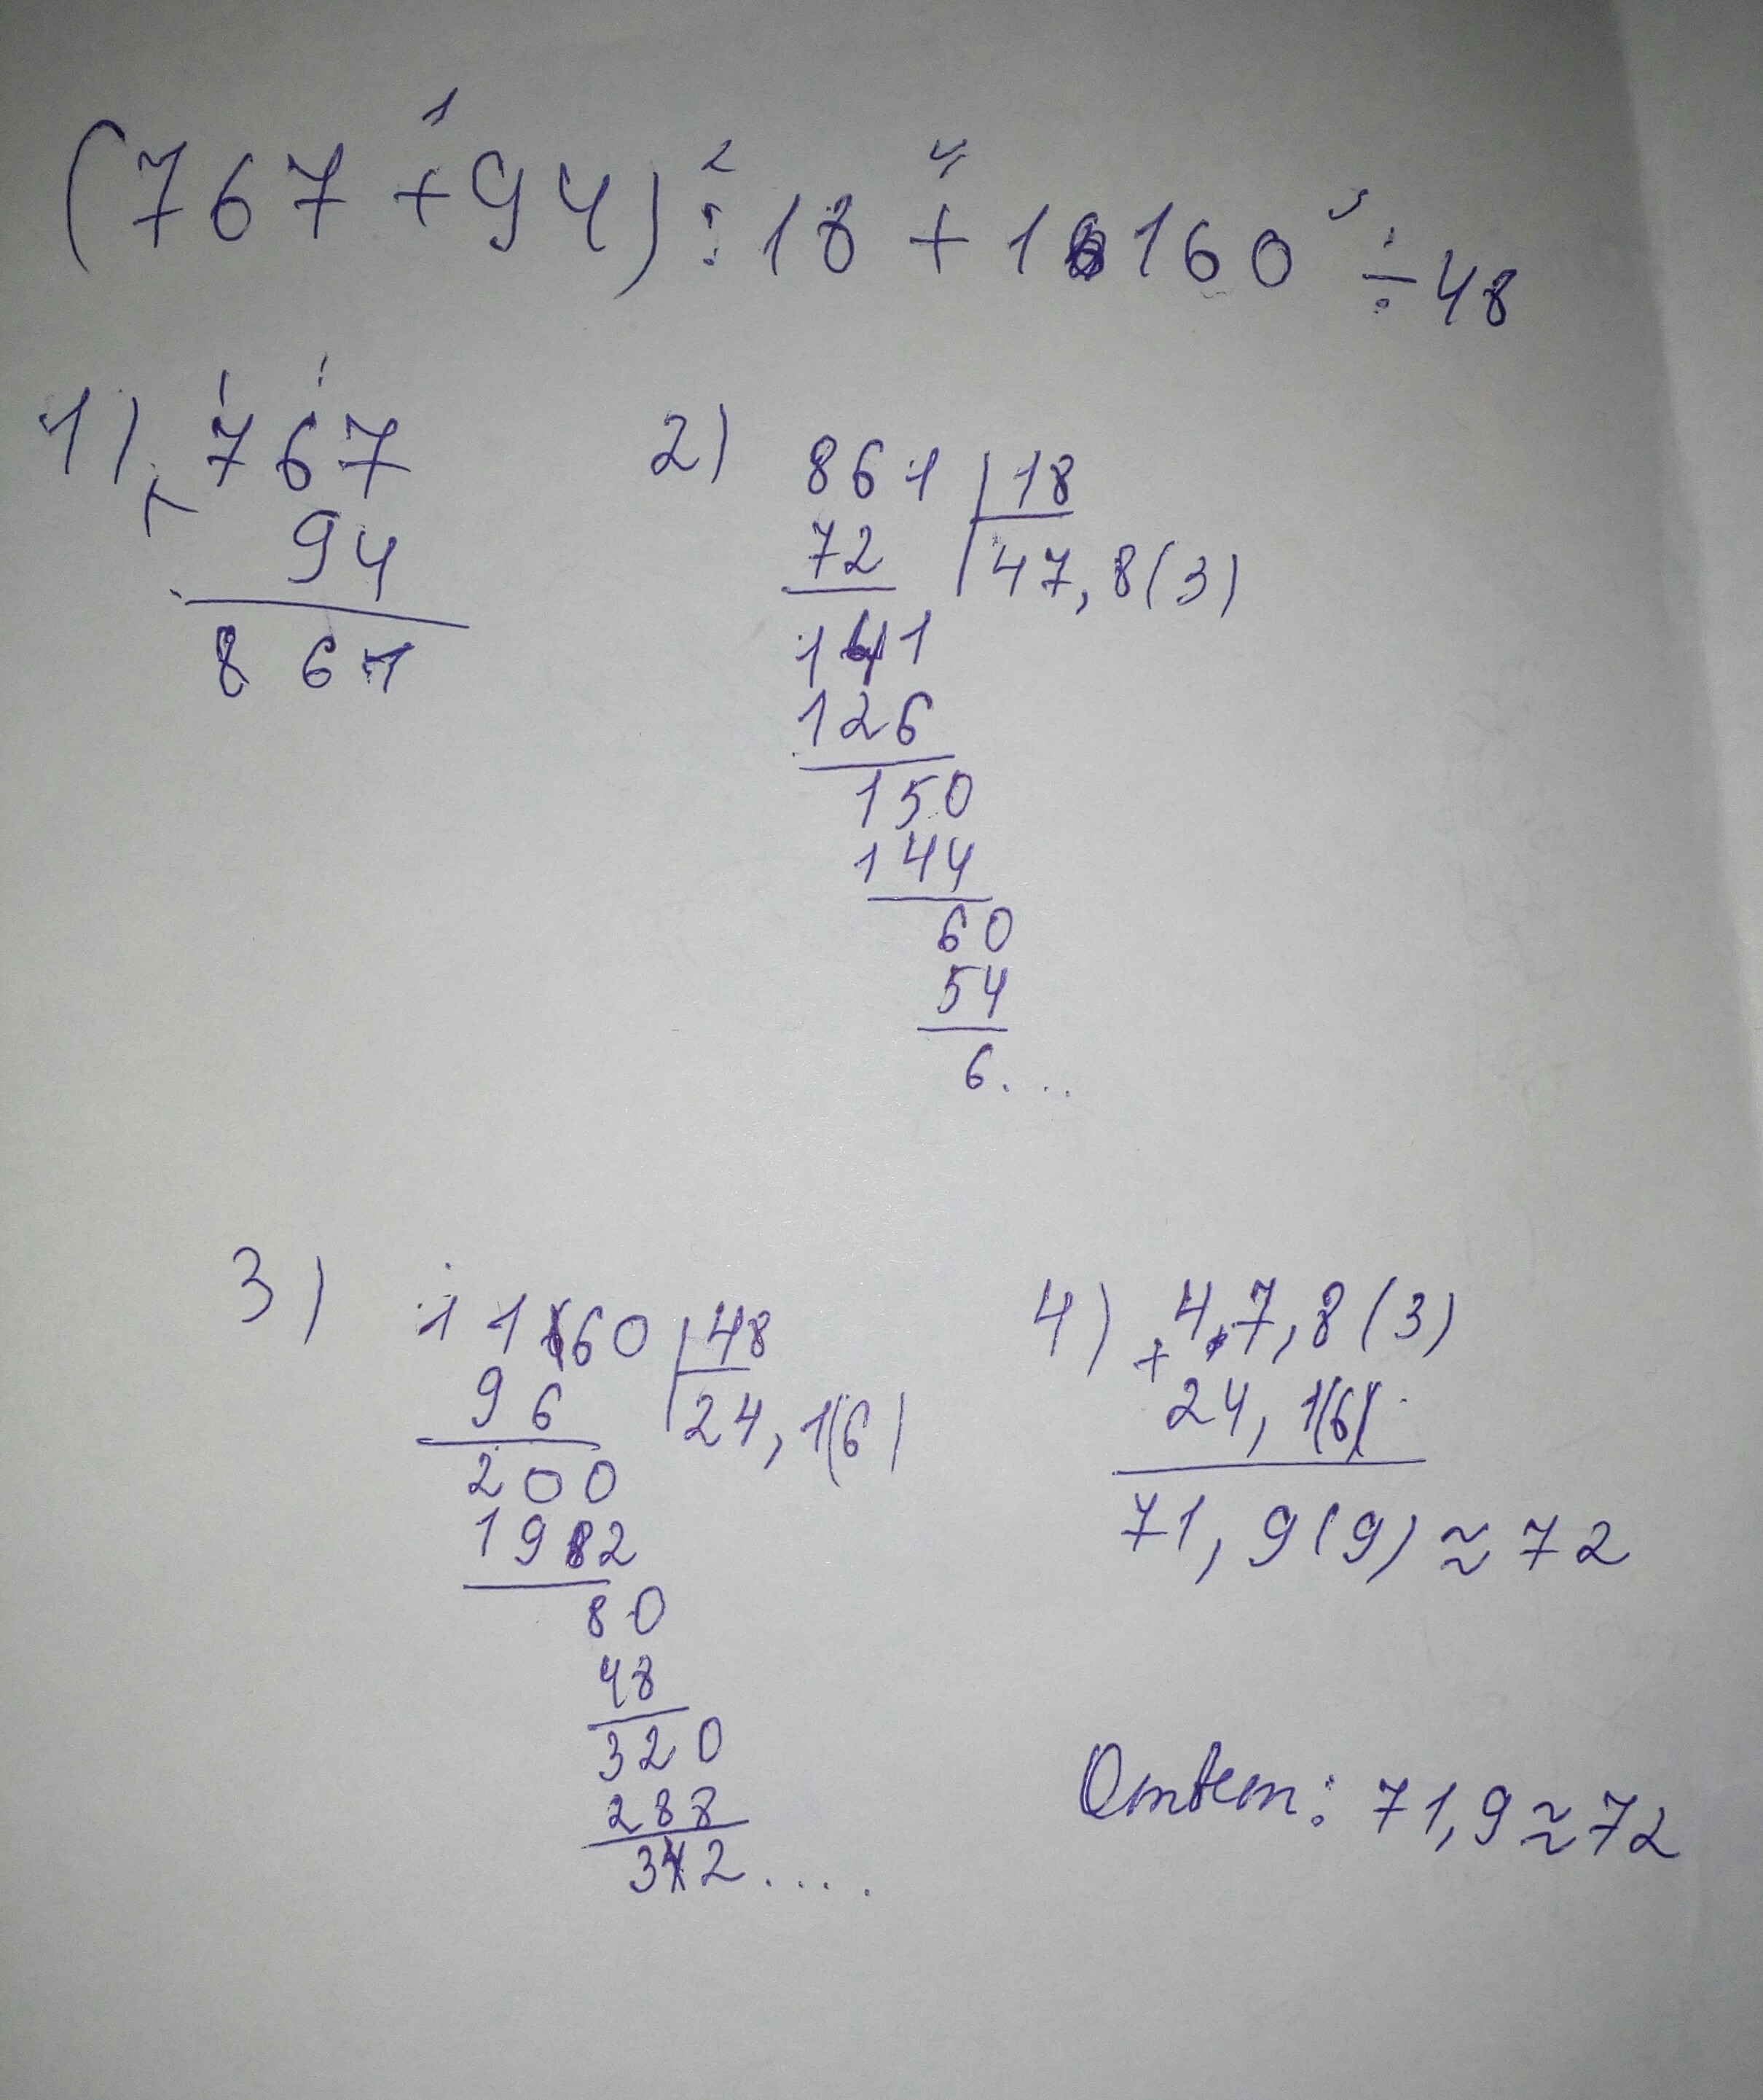 1 2 4 3
(767 + 94) : 18 + 1160 ÷ 48
1) + 767
94
867
2) 861 | 18
72 47,8(3)
141
126
150
144
60
54
6....
3) 1160 | 48
96 24,1(6)
200
192
80
48
320
288
32.....
4) + 47,8(3)
24,1(6)
71,9(9) ≈ 72
Ответ: 71,9 ≈ 72